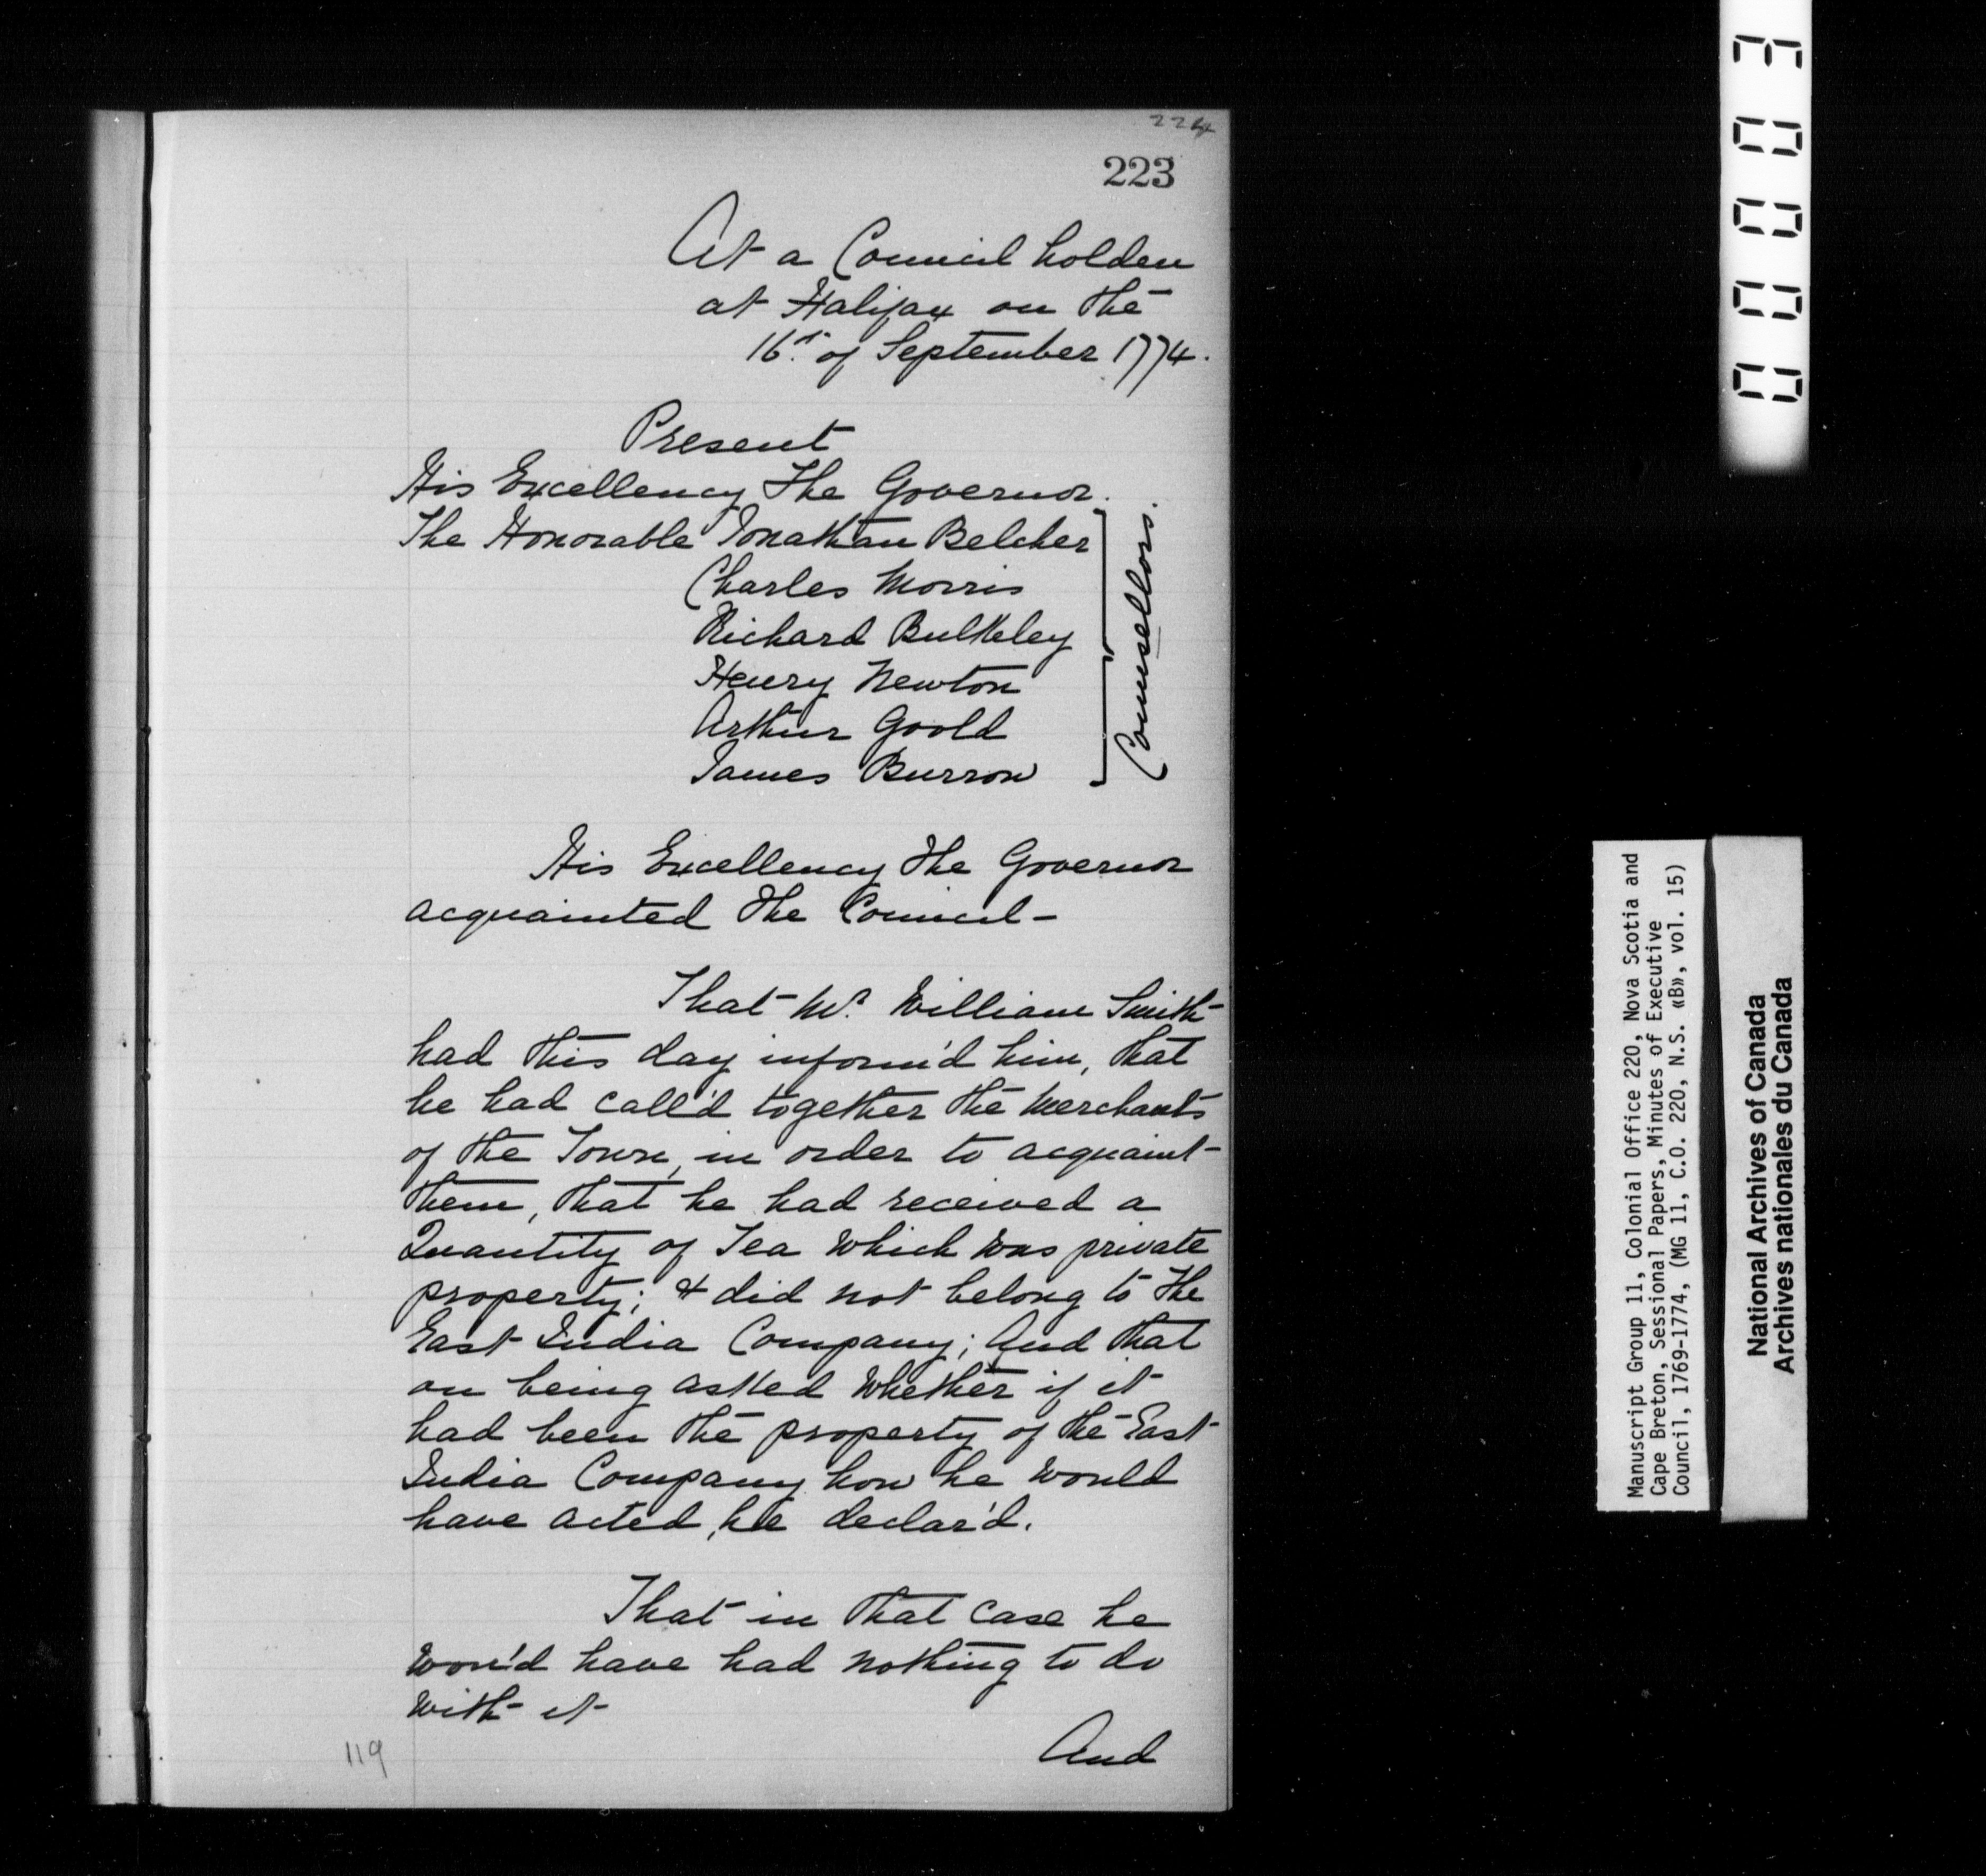 224
223
At a Council holden
at Halifax on the
16th of September 1774.
Present
His Excellency The Governor.
The Honorable Jonathan Belcher
Charles Morris
Richard Bulkeley
Henry Newton
Arthur Goold
James Burrow
Counsellors.
His Excellency the Governor
acquainted the Council -
That Mr. William Smith
had this day inform'd him, that
he had call'd together the Merchants
of the Town, in order to acquaint
them, that he had received a
Quantity of Tea which was private
property; & did not belong to the
East India Company; And that
on being asked whether if it
had been the property of the East
India Company how he would
have acted, he declar'd.
That in that case he
wou'd have had nothing to do
with it
And
119
00003
Manuscript Group 11, Colonial Office 220, Nova Scotia and
Cape Breton, Sessional Papers, Minutes of Executive
Council, 1769-1774, (MG 11, C.O. 220, N.S. «B», vol. 15)
National Archives of Canada
Archives nationales du Canada